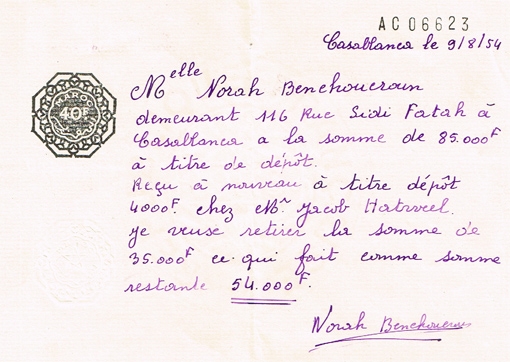 AC06623
Casablanca le 9/8/54
MAROC
40F
Melle Norah Benchoucroun
demeurant 116 Rue Sidi Fatah à
Casablanca a la somme de 85.000F
à titre de dépôt.
Reçu à nouveau à titre dépôt
4000F. chez Mr Jacob
je veuse retirer la somme de
35.000F ce qui fait comme somme
restante 54.000F.
Norah Benchoucroun